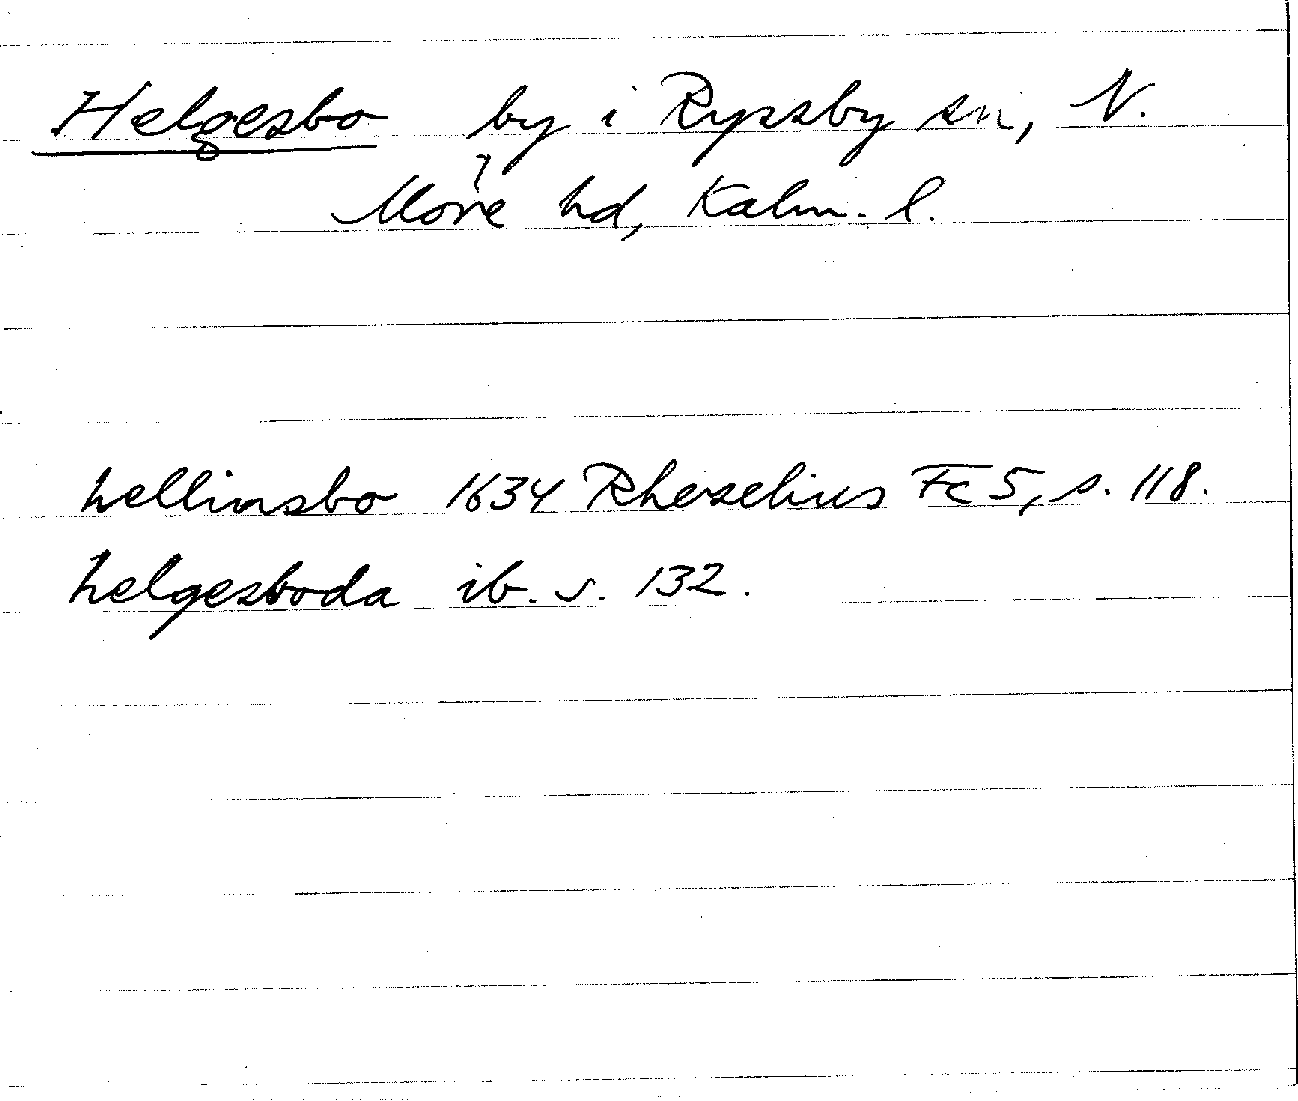 Helgesbo by i Ryssby sn, N.
Möre hd, Kalm. l.
hellinsbo 1634 Rhezelius Fc 5, s. 118.
helgesboda ib. s. 132.